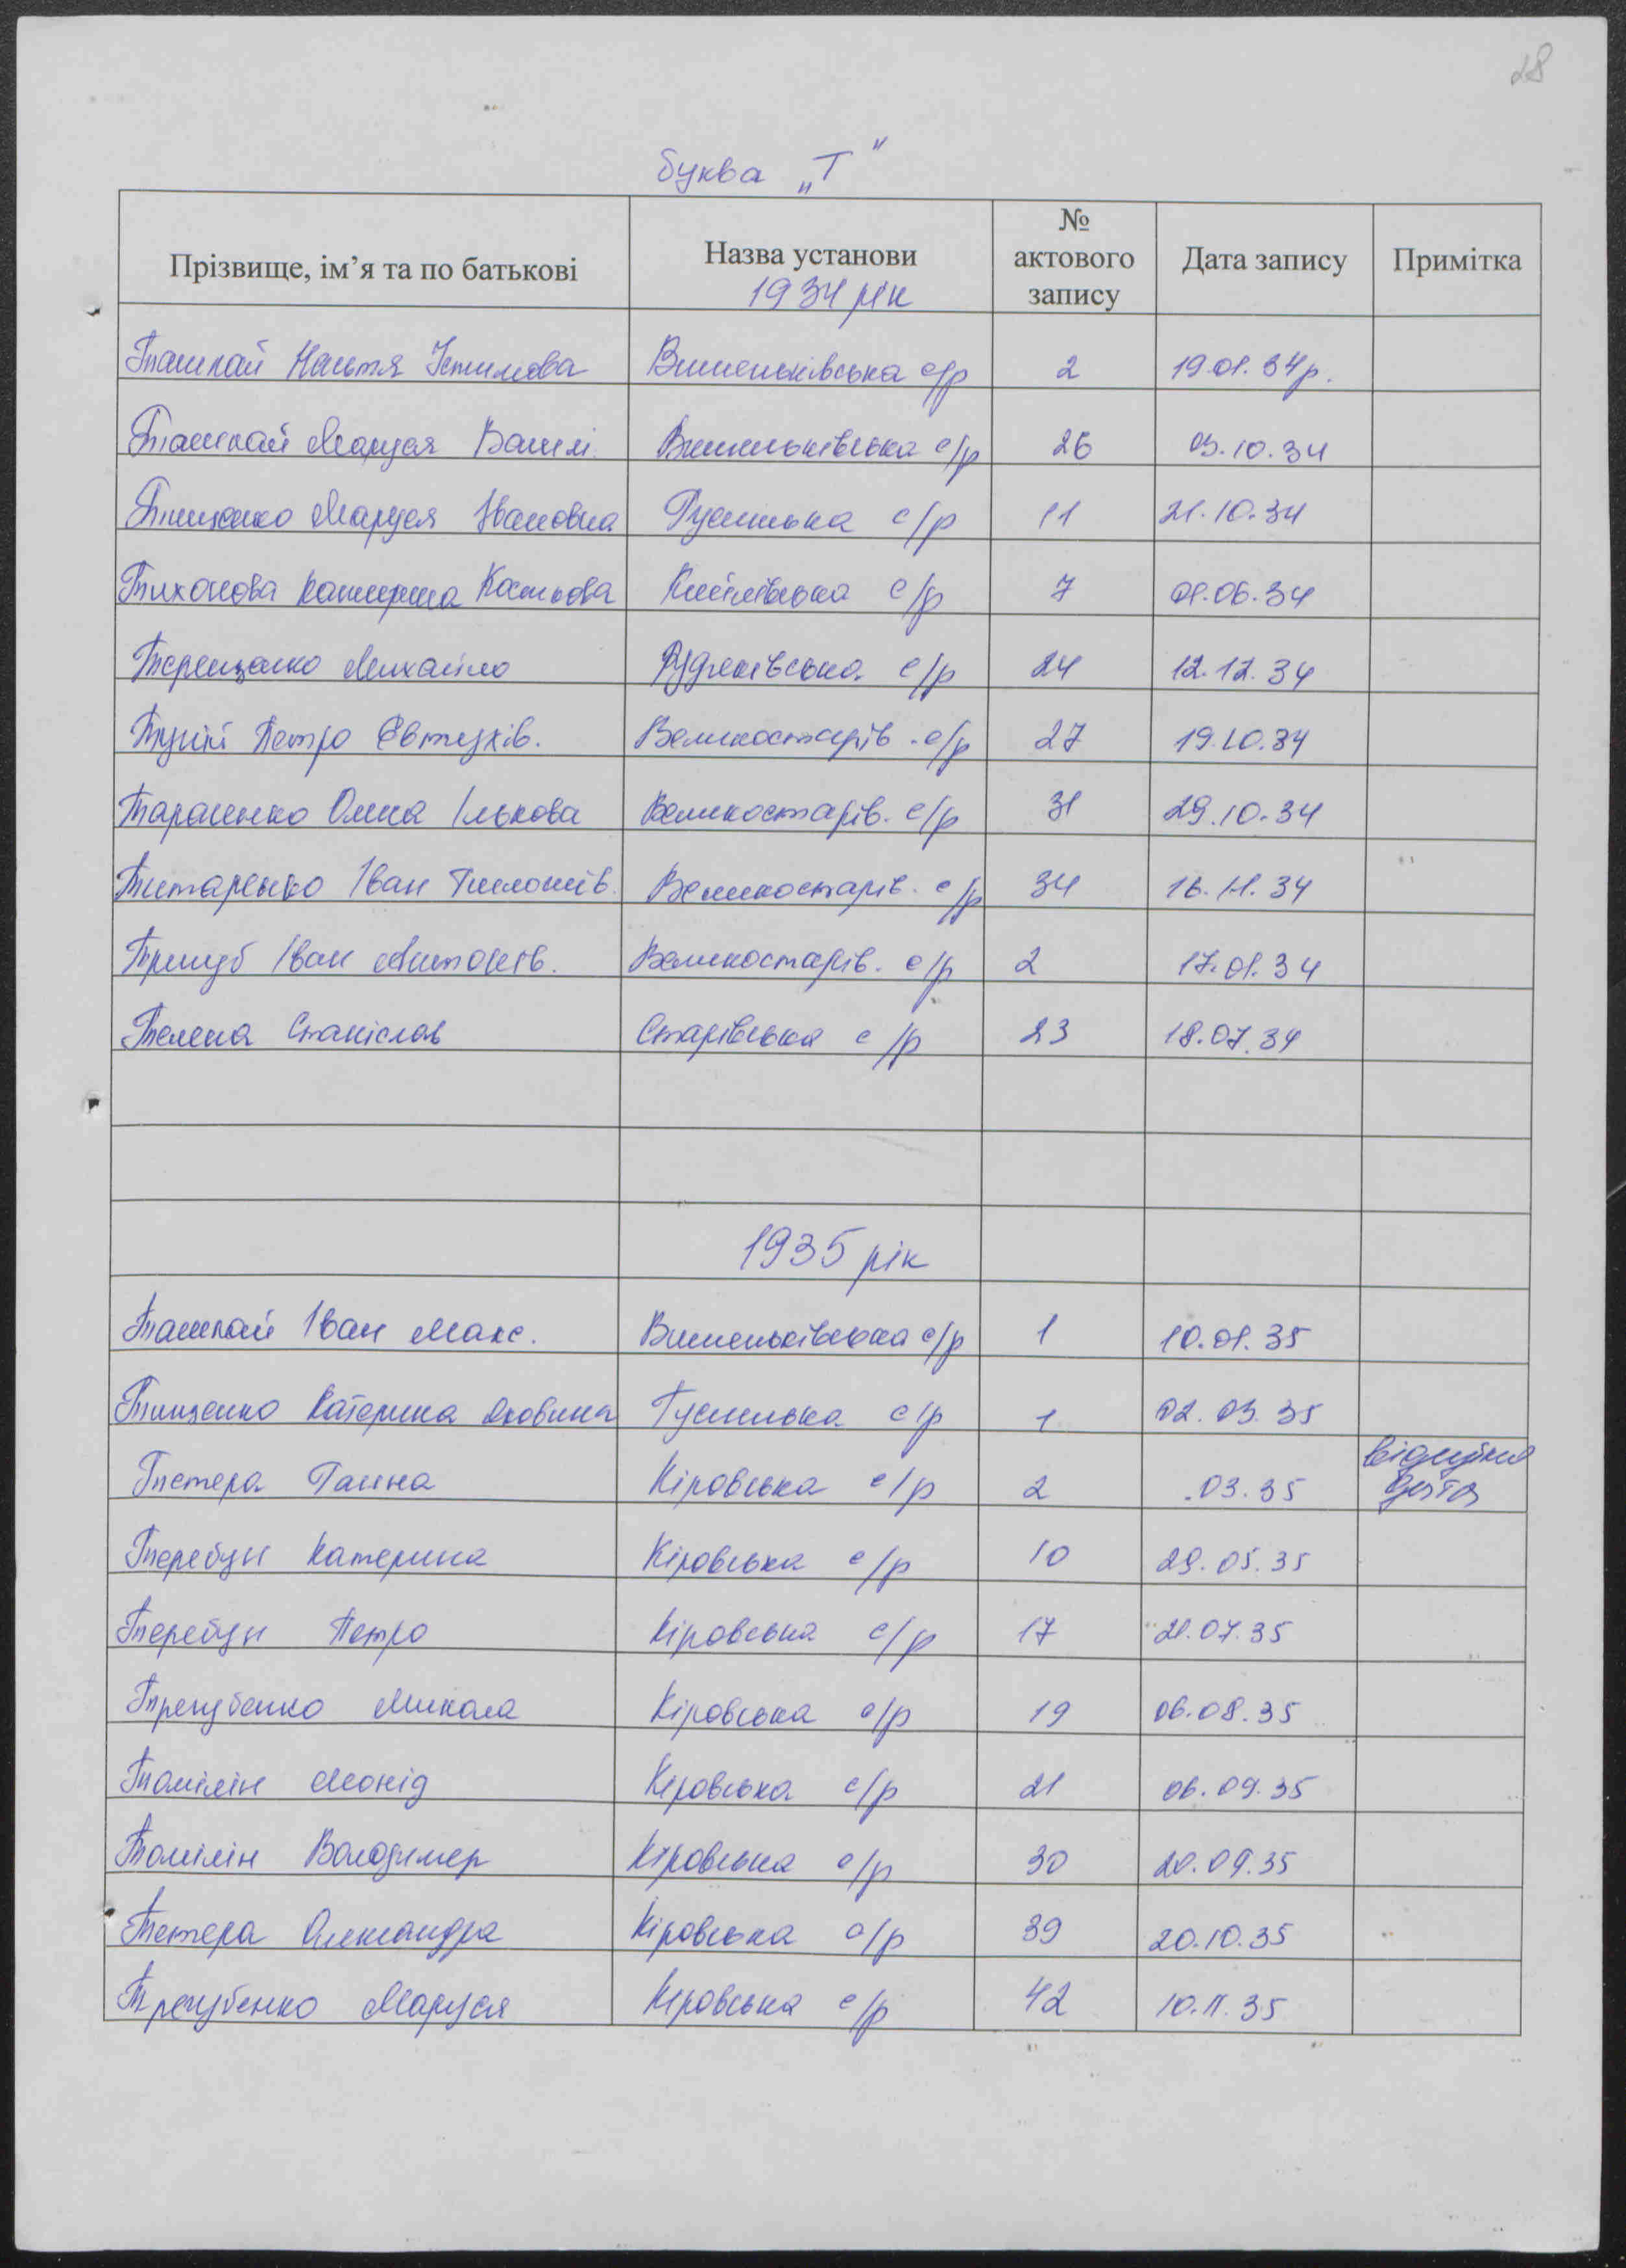 28
буква „Т"
Прізвище, ім’я та по батькові Назва установи № актового запису Дата запису Примітка
1934 рік
Ташлай Настя Устимова Вишеньківська с/р 2 19.01.34р.
Ташлай Маруся Васил. Вишеньківська с/р 26 03.10.34
Тищенко Маруся Івановна Гусинська с/р 11 21.10.34
Тихонова Катерина Костьова Кийлівська с/р 7 01.06.34
Терещенко Михайло Рудяківська с/р 24 12.12.34
Петро Євтухів. Великостарів. с/р 27 19.10.34
Тарасенко ОльгаІлькова Великостарів. с/р 31 29.10.34
Титаренко Іван Тимошів. Великостарів. с/р 34 16.11.34
Тригуб Іван Антонів. Великостарів. с/р 2 17.01.34
Телега Станіслав Старівська с/р 23 18.07.34
1935 рік
Ташлай Іван Макс. Вишеньківська с/р 1 10.01.35
Тищенко Катерина Яковина Гусинська с/р 1 02.03.35
Тетера Ганна Кіровська с/р 2 .03.35 відсутня дата
Теребун Катерина Кіровська с/р 10 29.05.35
Теребун Петро Кіровська с/р 17 21.07.35
Трегубенко Микола Кіровська с/р 19 06.08.35
Томілін Леонід Кіровська с/р 21 06.09.35
Томілін Володимер Кіровська с/р 30 20.09.35
Тетера Олександра Кіровська с/р 39 20.10.35
Трегубенко Маруся Кіровська с/р 42 10.11.35